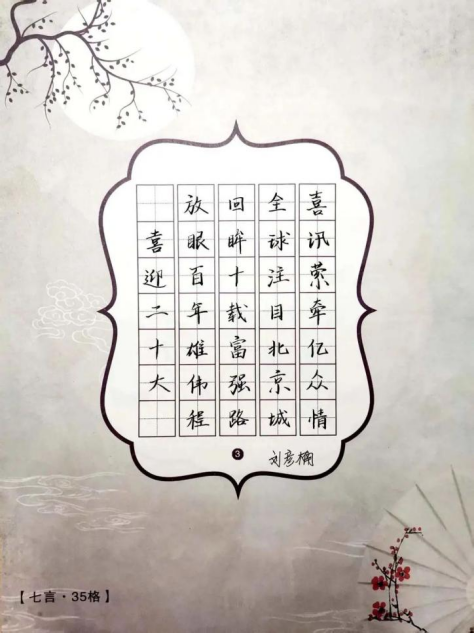 喜讯萦牵亿众情
全球注目北京城
回眸十载富强路
放眼百年雄伟程
喜迎二十大
3
刘彦
【七言·35格】